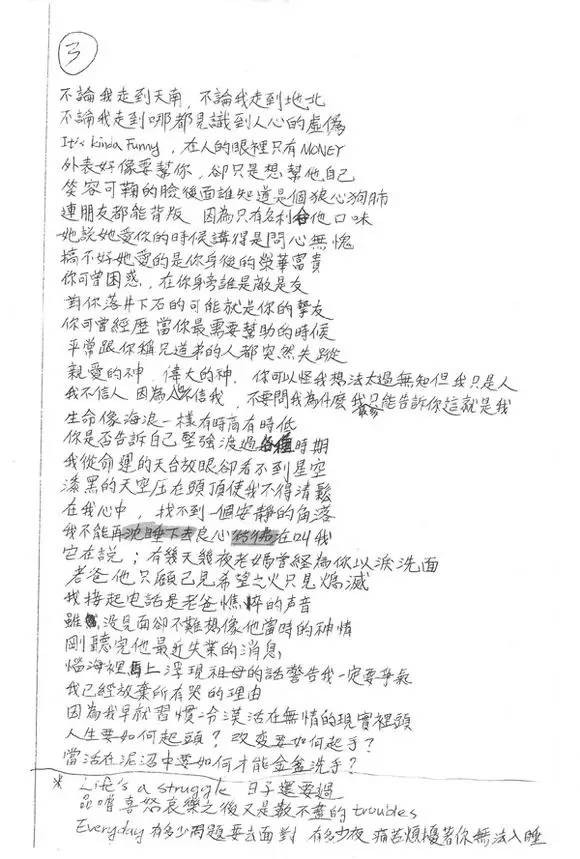 3
不論我走到天南,不論我走到地北
不論我走到哪都見識到人心的虛偽
It's kinda Funny,在人的眼裡只有MONEY
外表好像要幫你,卻只是想幫他自己
笑容可鞠的臉後面誰知道是個狼心狗肺
連朋友都能背叛 因為只有名利合他口味
她說她愛你的時候講得是問心無愧
搞不好她愛的是你身後的榮華富貴
你可曾困惑,在你身旁誰是敵是友
對你落井下石的可能就是你的摯友
你可曾經歷當你最需要幫助的時候
平常跟你稱兄道弟的人都突然失蹤
親愛的神 偉大的神,你可以怪我想法太過無知但我只是人
我不信人 因為人不信我,不要問我為什麼 我只能告訴你這就是我
生命像海浪一樣有時高有時低
你是否告訴自己堅強渡過各種時期
我從命運的天台放眼卻看不到星空
漆黑的天空压在頭頂使我不得清鬆
在我心中,找不到一個安靜的角落
我不能再沈睡下去良心彷彿在叫我
它在說;有幾天幾夜老媽曾經為你以淚洗面
老爸他只顧己見希望之火只見熄滅
我接起電話是老爸憔悴的声音
雖沒見面卻不難想像他當時的神情
剛聽完他最近失業的消息,
惱海裡馬上浮現祖母的話警告我一定要爭氣
我已經放棄所有哭的理由
因為我早就習慣一个漠活在無情的現實裡頭
人生要如何起頭?改变要如何起手?
當活在泥沼中要如何才能金盆洗手?
* Life's a struggle 日子還要過
品嚐喜怒哀樂之後又是數不盡的troubles
Everyday 有多少問題要去面對 有多少夜 痛苦煩擾著你無法入睡